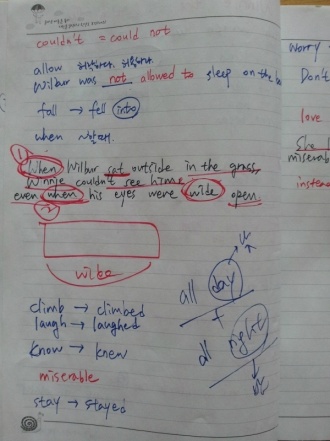 couldn't = could not
allow 허락하다. 허락하다.
Wilbur was not allowed to sleep on the
fall → fell into
when ~할 때.
①
When Wilbur sat outside in the grass,
Winnie couldn't see hime
even when his eyes were wide open
②
wibe
climb → climbed
laugh → laughed
know → knew
miserable
stay → stayed
all day
+
all night
worry
Don't
love
She
miserable
instead